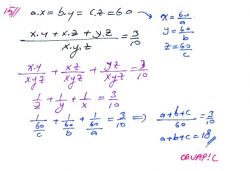 15// a.x = b.y = c.z = 60 → x = 60/a
y = 60/b
z = 60/c
x.y + x.z + y.z / x.y.z = 3/10
x.y/xyz + xz/xyz + yz/xyz = 3/10
1/z + 1/y + 1/x = 3/10
1/(60/c) + 1/(60/b) + 1/(60/a) = 3/10 ⇒ a+b+c/60 = 3/10
a+b+c = 18//
CEVAP: C